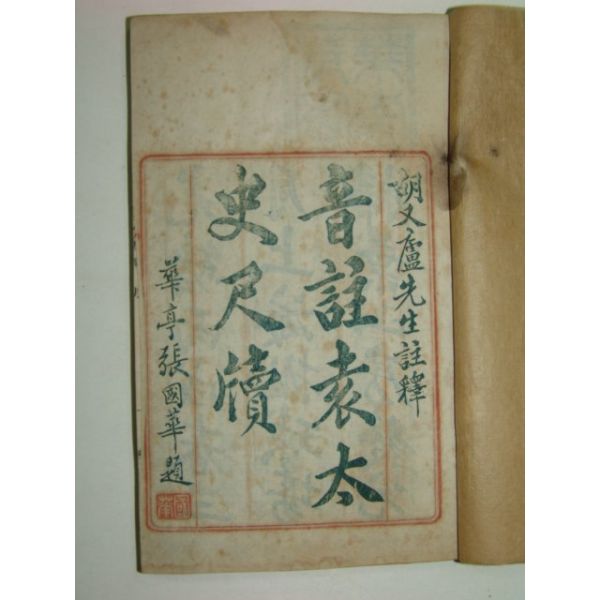 胡又廬先生註釋
音註袁太
史尺牘
華亭張國華題